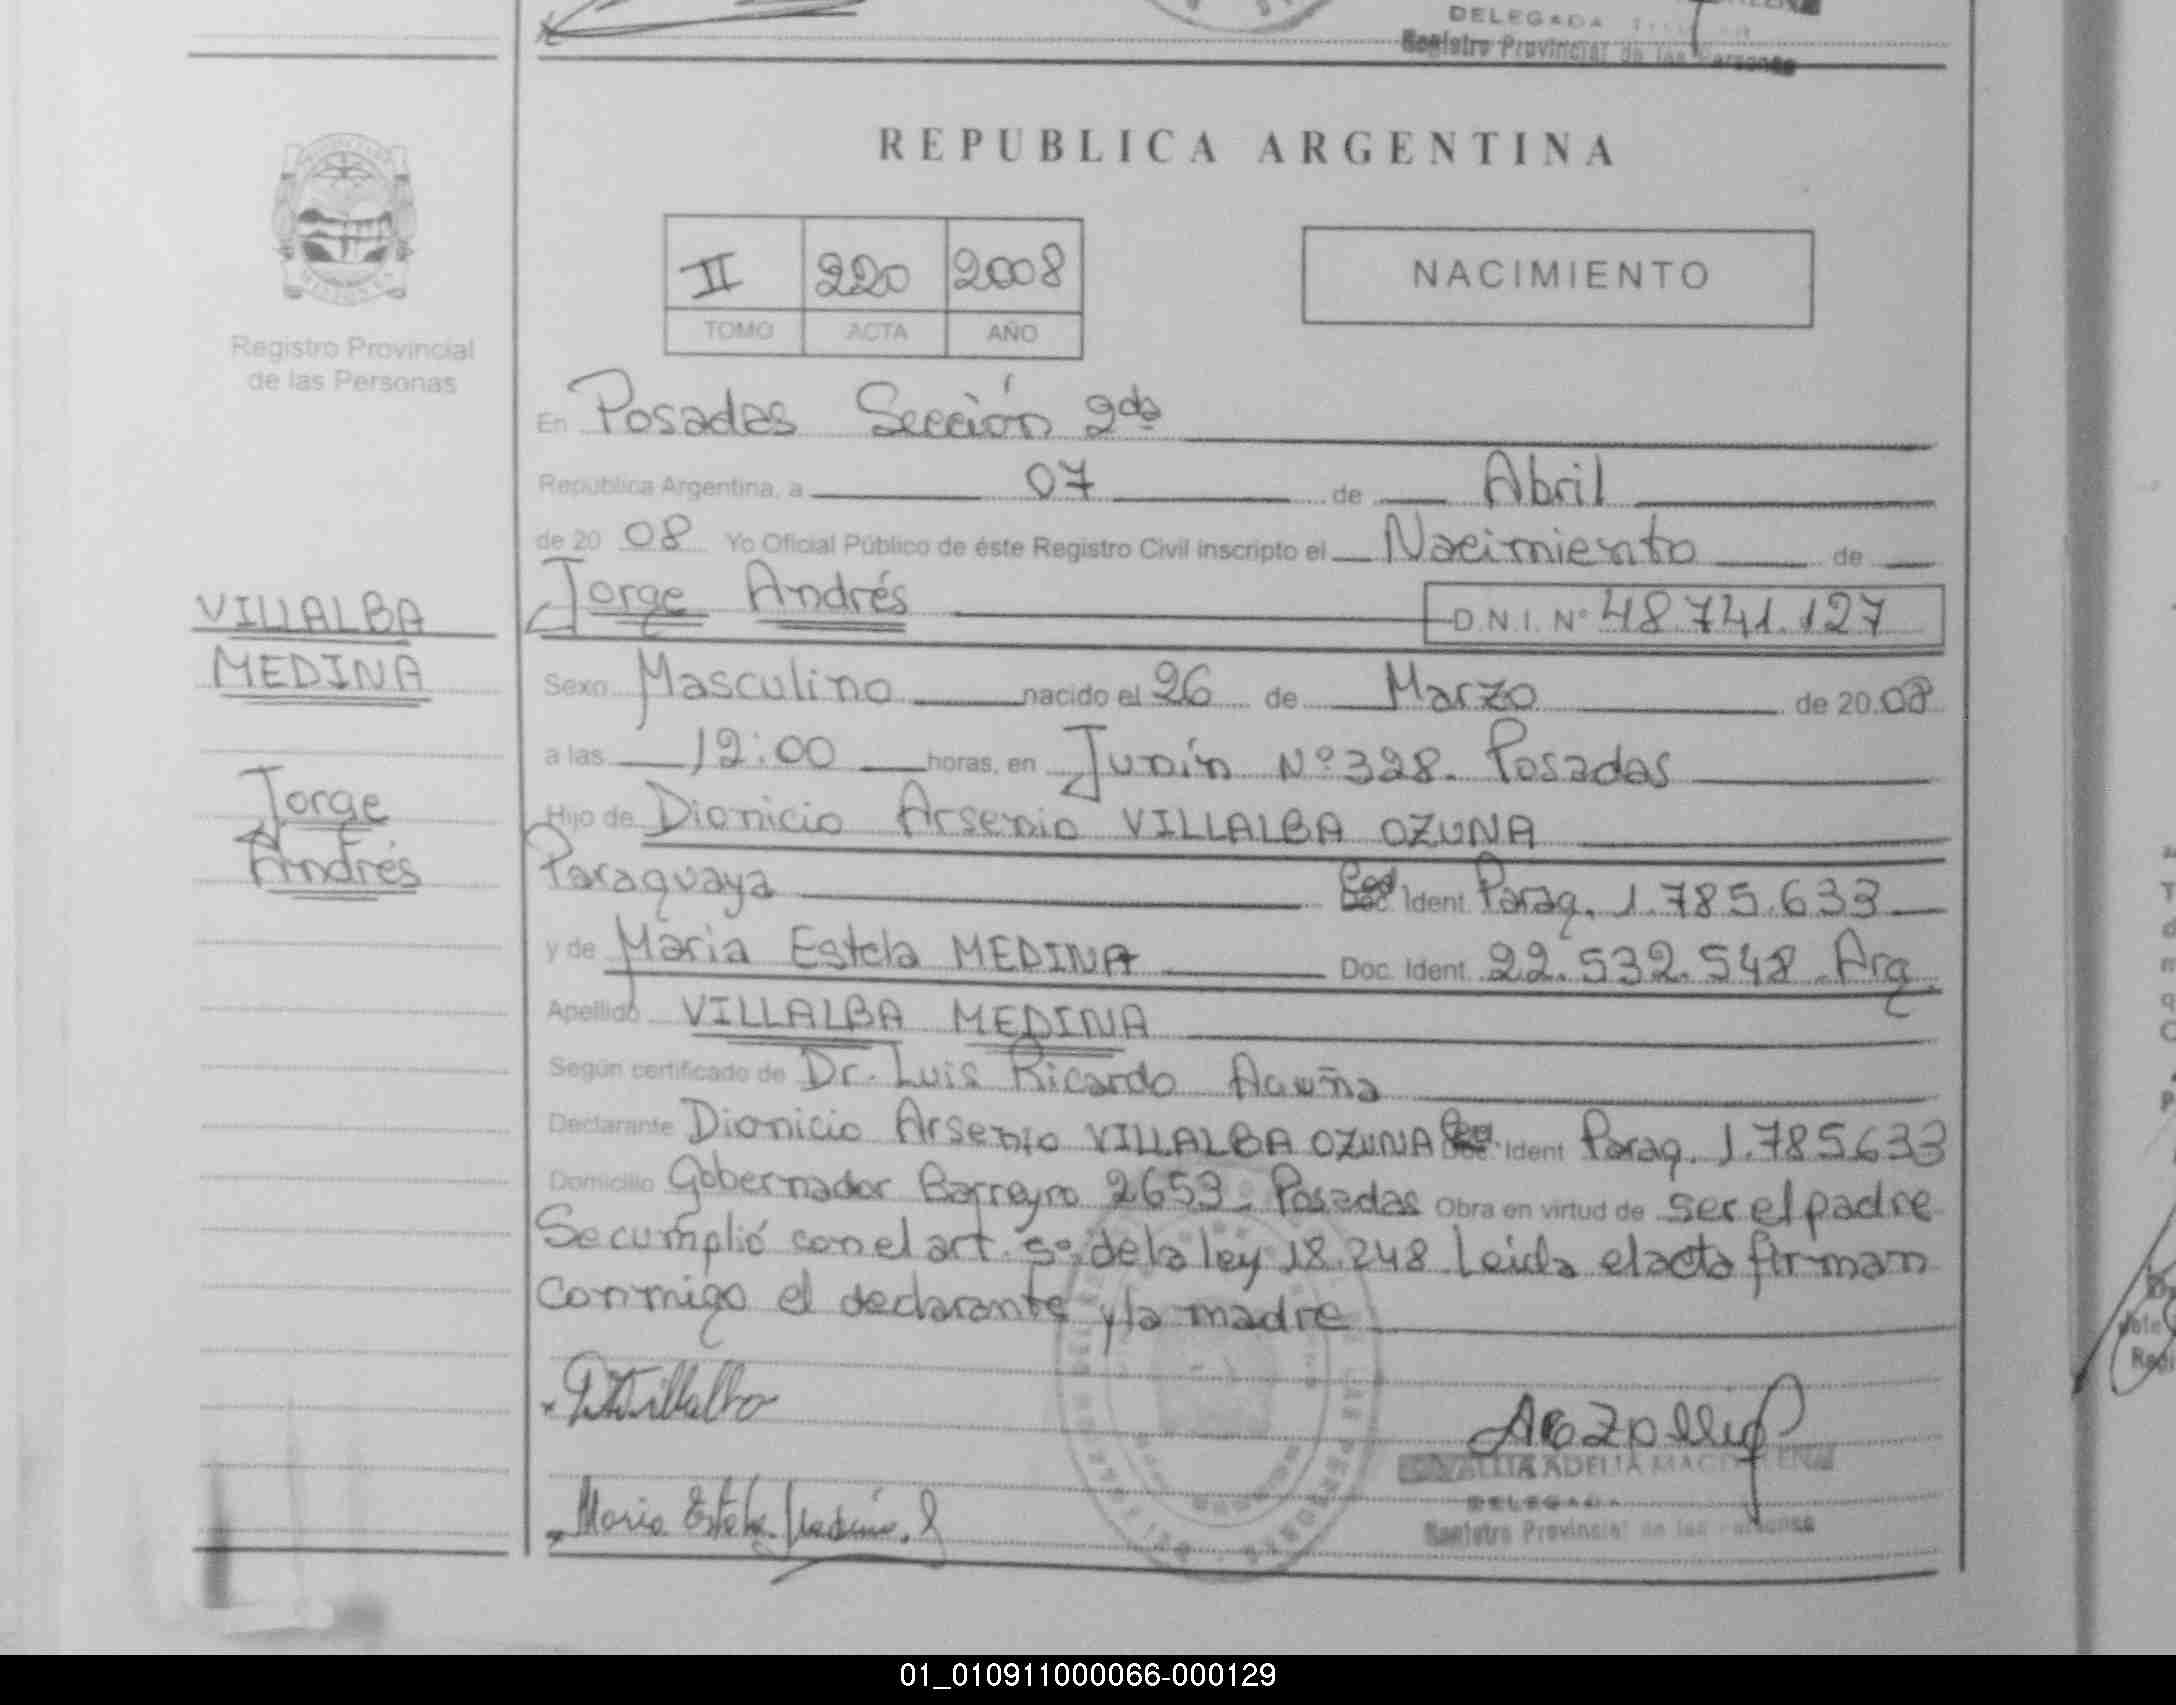 DELEGADA
Registro Provincial de las Personas
REPUBLICA ARGENTINA
II 220 2008
TOMO ACTA AÑO
NACIMIENTO
Registro Provincial
de las Personas
En Posadas Sección 2da
Republica Argentina, a 07 de Abril
de 20 08 Yo Oficial Público de éste Registro Civil inscripto el Nacimiento de
Jorge Andrés D.N.I. Nº 48.741.127
VILLALBA
MEDINA
Jorge
Andrés
Sexo Masculino nacido el 26 de Marzo de 20 08
a las 12:00 horas, en Junín Nº 328. Posadas
Hijo de Dionicio Arsenio VILLALBA OZUNA
Paraguaya Ced Ident. Parag. 1.785.633
y de Maria Estela MEDINA Doc. Ident. 22.532.548 Arg.
Apellido VILLALBA MEDINA
Según certificado de Dr. Luis Ricardo Acuña
Declarante Dionicio Arsenio VILLALBA OZUNA Ident Parag. 1.785633
Domicilio Gobernador Barreyro 2653. Posadas Obra en virtud de ser el padre
Se cumplió con el art. 5º de la ley 18.248 Leida el acta firman
conmigo el declarante y la madre
Villalba
Maria Estela Medina
ADELIA
DELEGADA
Registro Provincial de las Personas
01_010911000066-000129